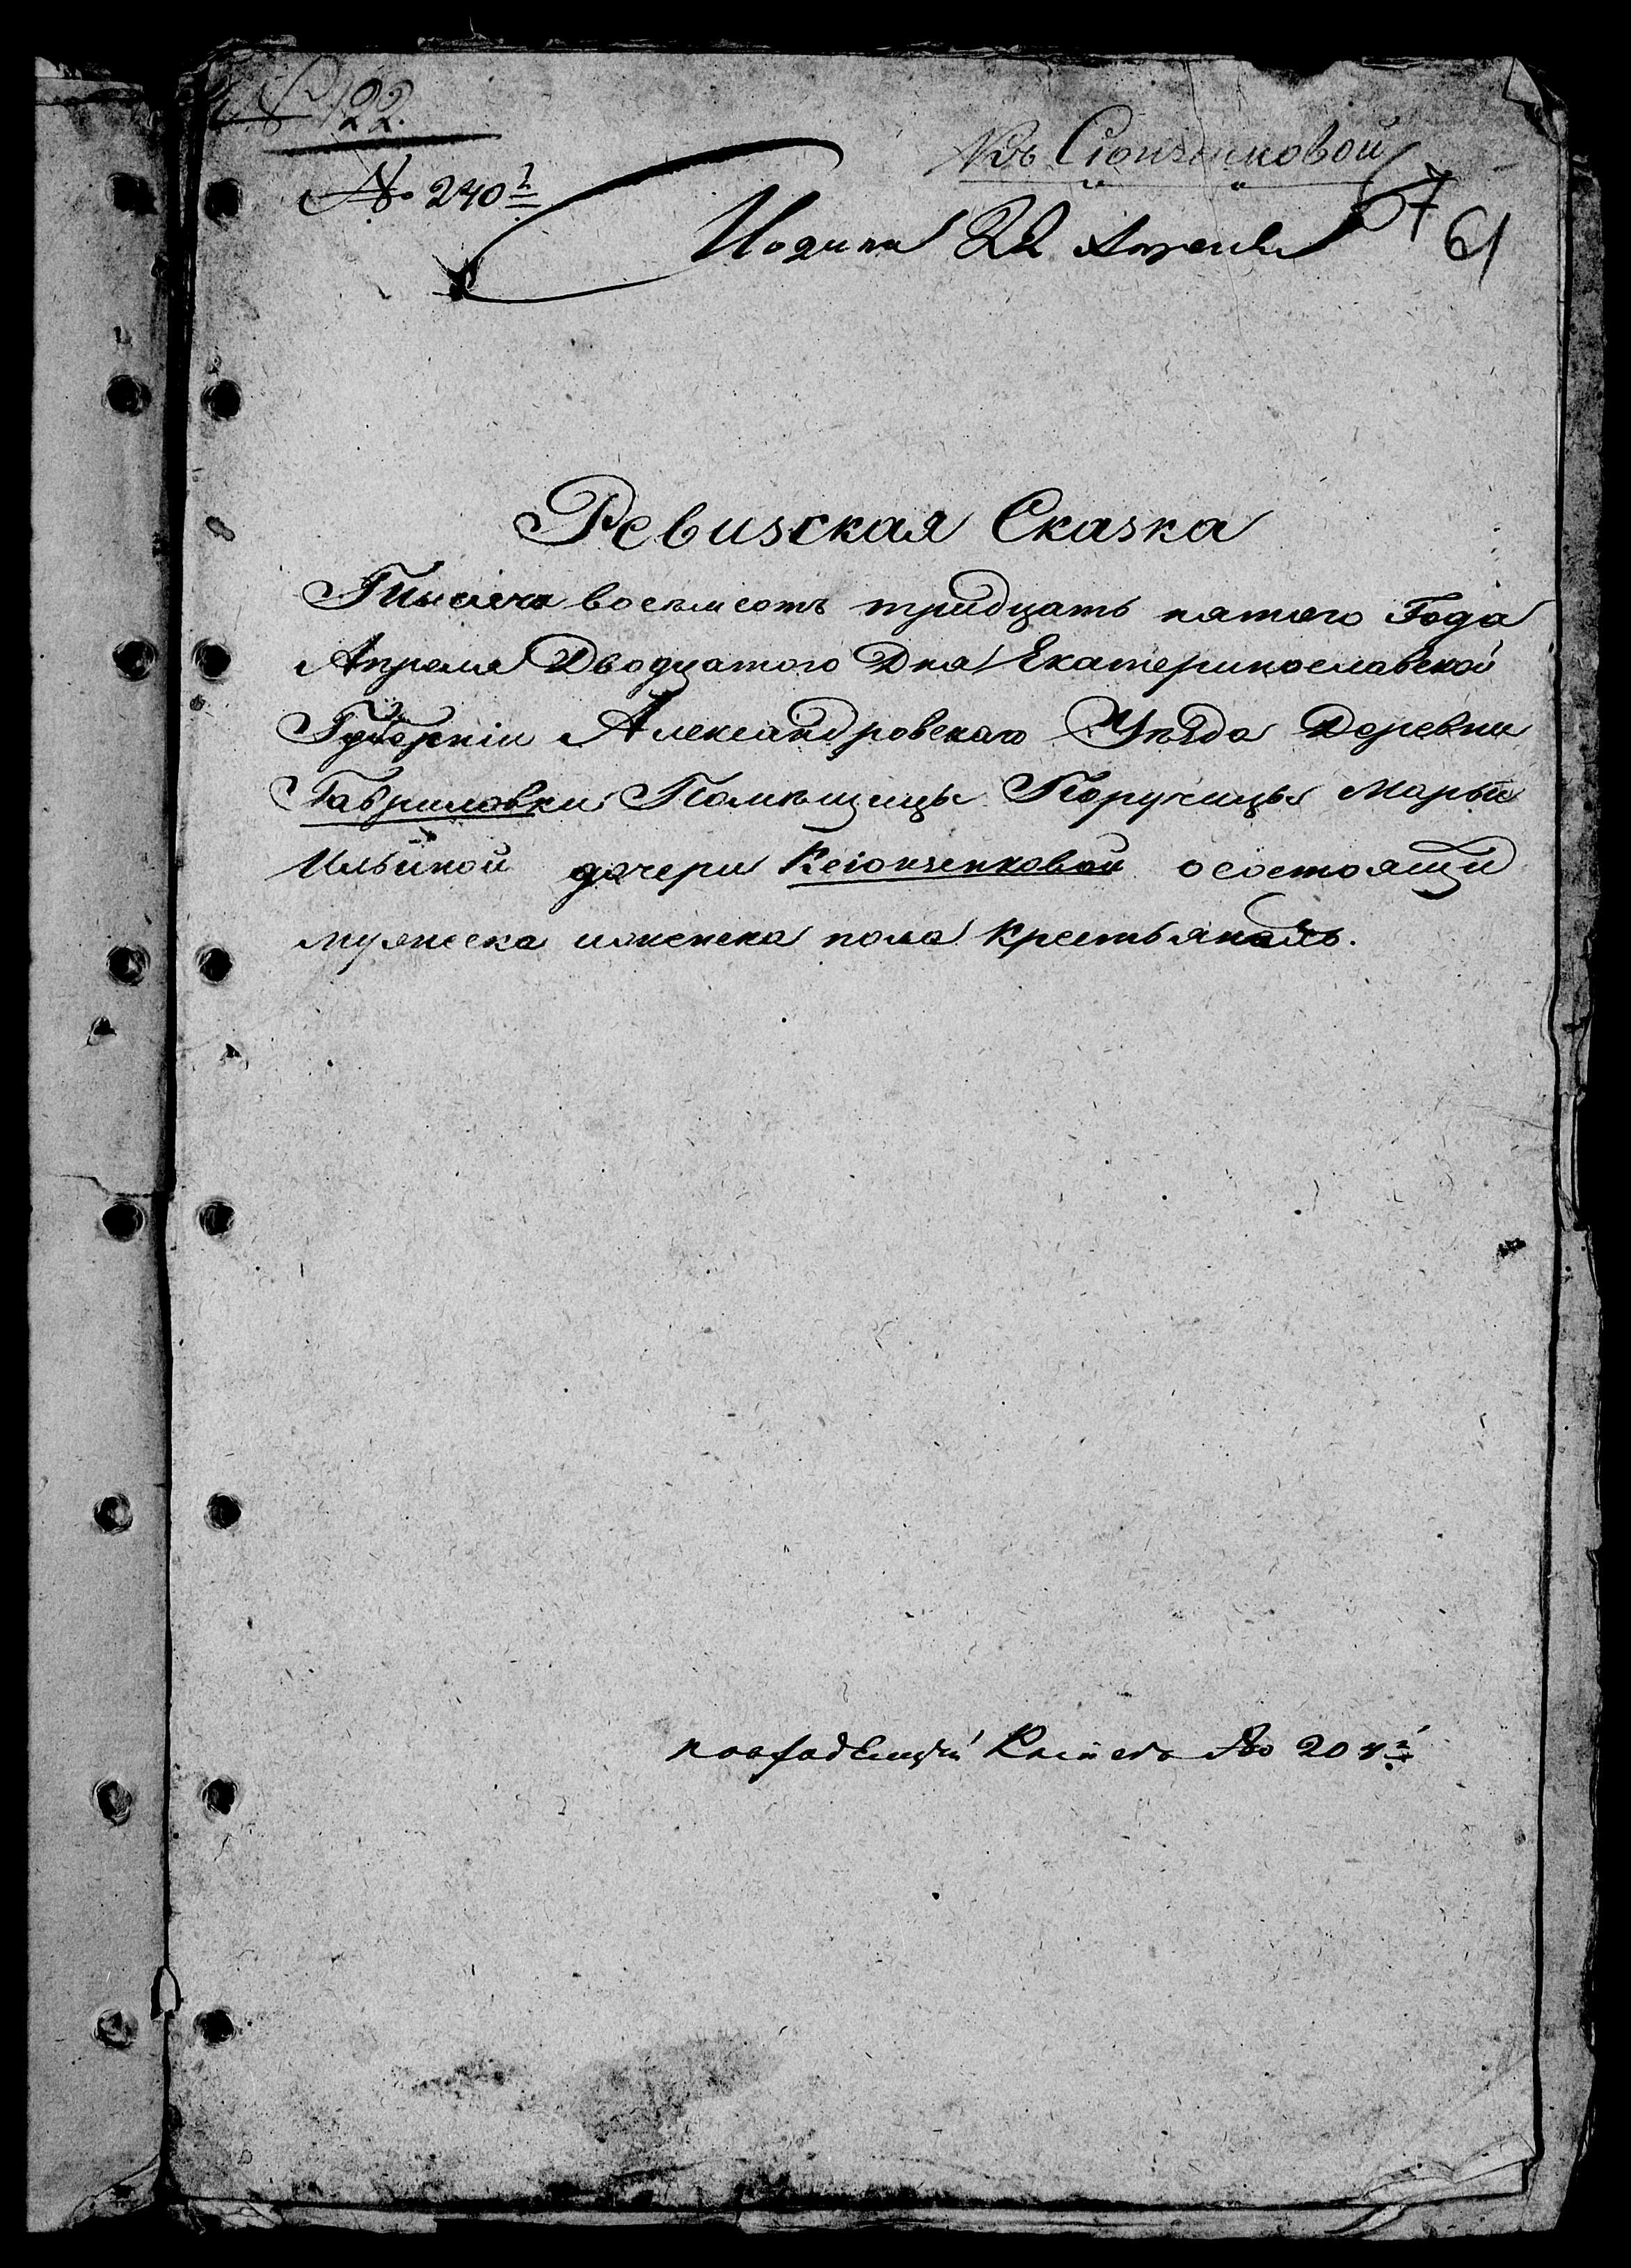 № 122.
№ 240
Сіончинковой
57
61
Подана 22 Апреля
Ревизская Сказка
Тысяча восемсотъ тридцать пятаго Года
Апреля Двадцатого Дня Екатеринославской
Губерніи Александровскаго Уѣзда Деревни
Гавриловки Помѣщицы Поручицы Марьи
Ильиной дочери Ксіонзенковой о состоящи
мужеска и женска пола крестьянахъ.
по 20